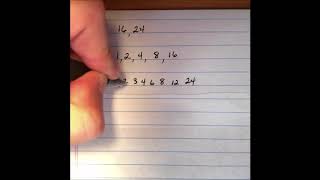 16, 24
1, 2, 4, 8, 16
2 3 4 6 8 12 24